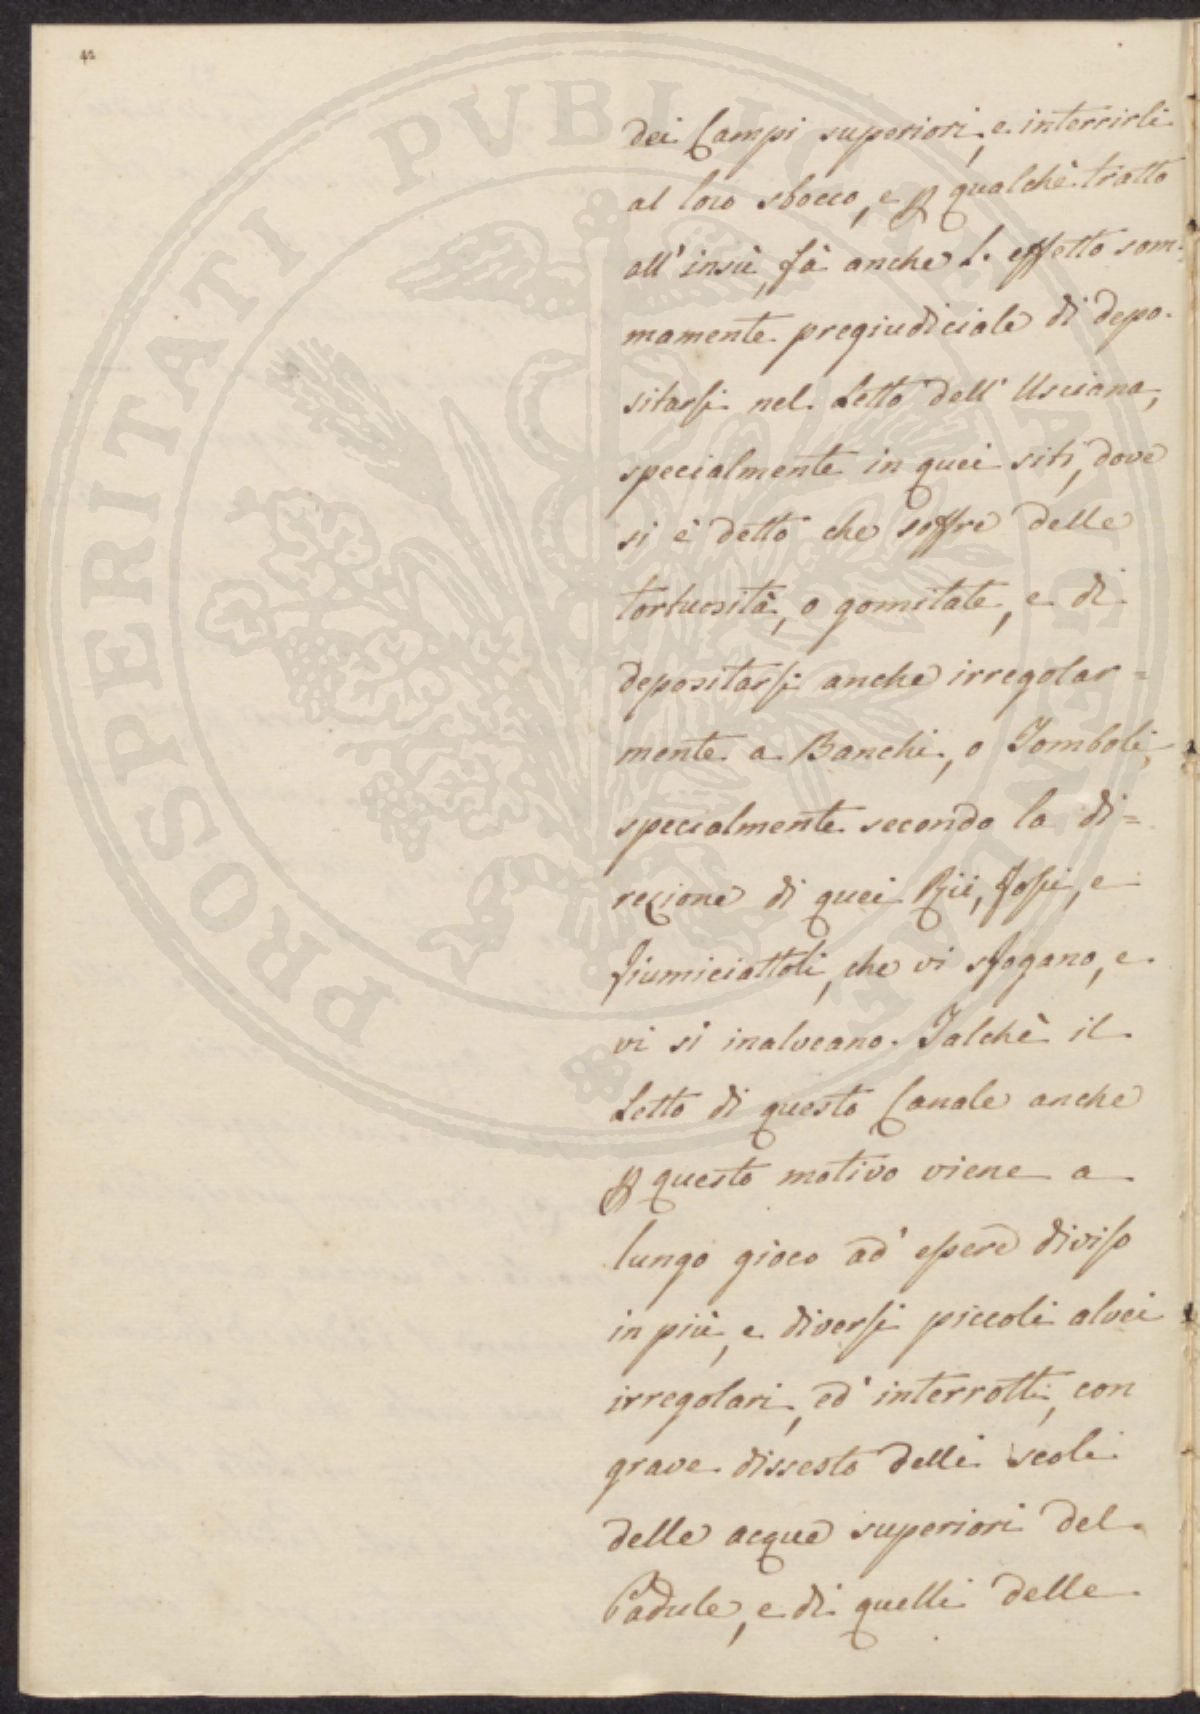 42
dei Campi superiori, e interrirli
al loro sbocco, e p qualchè tratto
all' insù, fà anche l' effetto som-
mamente pregiudiciale di depo-
sitarsi nel Letto dell' Usciana,
specialmente in quei siti, dove
si è detto che soffre delle
tortuosità, o gomitate, e di
depositarsi anche irregolar=
mente a Banchi, o Tomboli,
specialmente secondo la di=
rezione di quei Rii, fossi, e
fiumiciattoli, che vi sfogano, e
vi si inalveano. Talchè il
Letto di questo Canale anche
p questo motivo viene a
lungo gioco ad' essere diviso
in più, e diversi piccoli alvei
irregolari, ed' interrotti, con
grave dissesto delli scoli
delle acque superiori del
Padule, e di quelli delle
PROSPERITATI PVBLICAE AVGENDAE